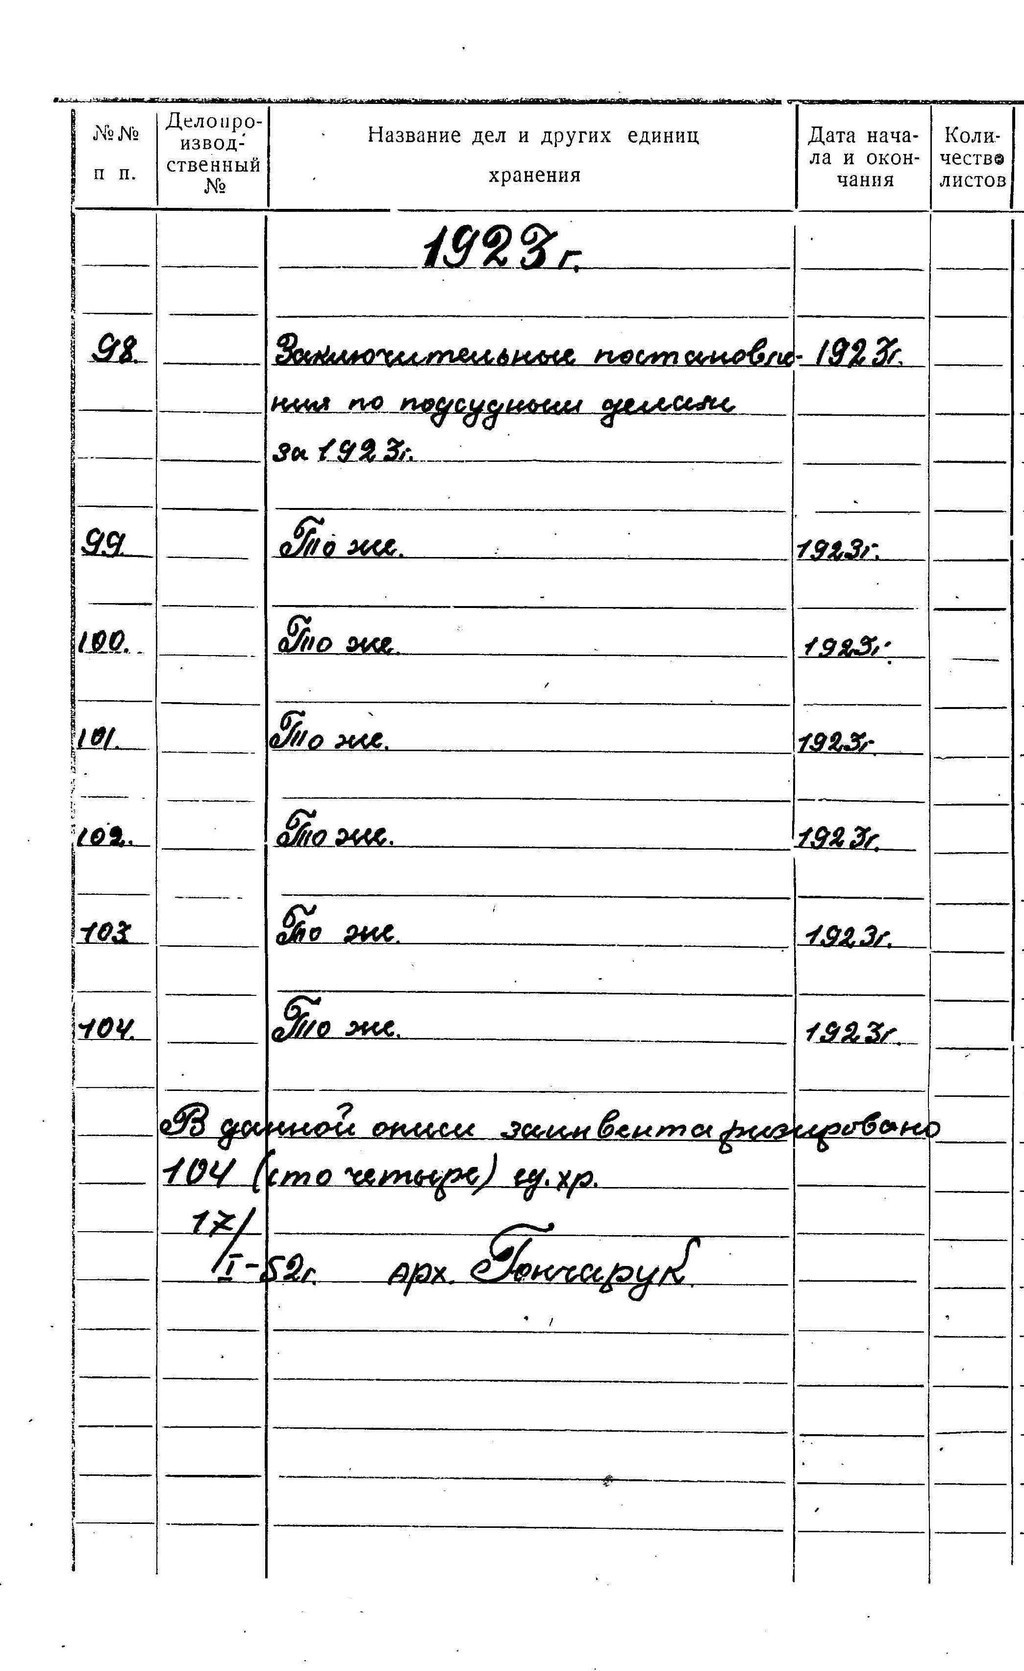 №№ п п. Делопроизвод-ственный № Название дел и других единиц хранения Дата начала и окончания Количество листов
1923 г.
98. Заключительные постановле- 1923г.
ния по подсудным делам
за 1923г.
99 То же. 1923г.
100. То же. 1923г.
101. То же. 1923г.
102. То же. 1923г.
103 То же. 1923г.
104. То же. 1923г.
В данной описи заинвентаризировано
104 (сто четыре) ед. хр.
17/
I-52г. арх. Гончарук